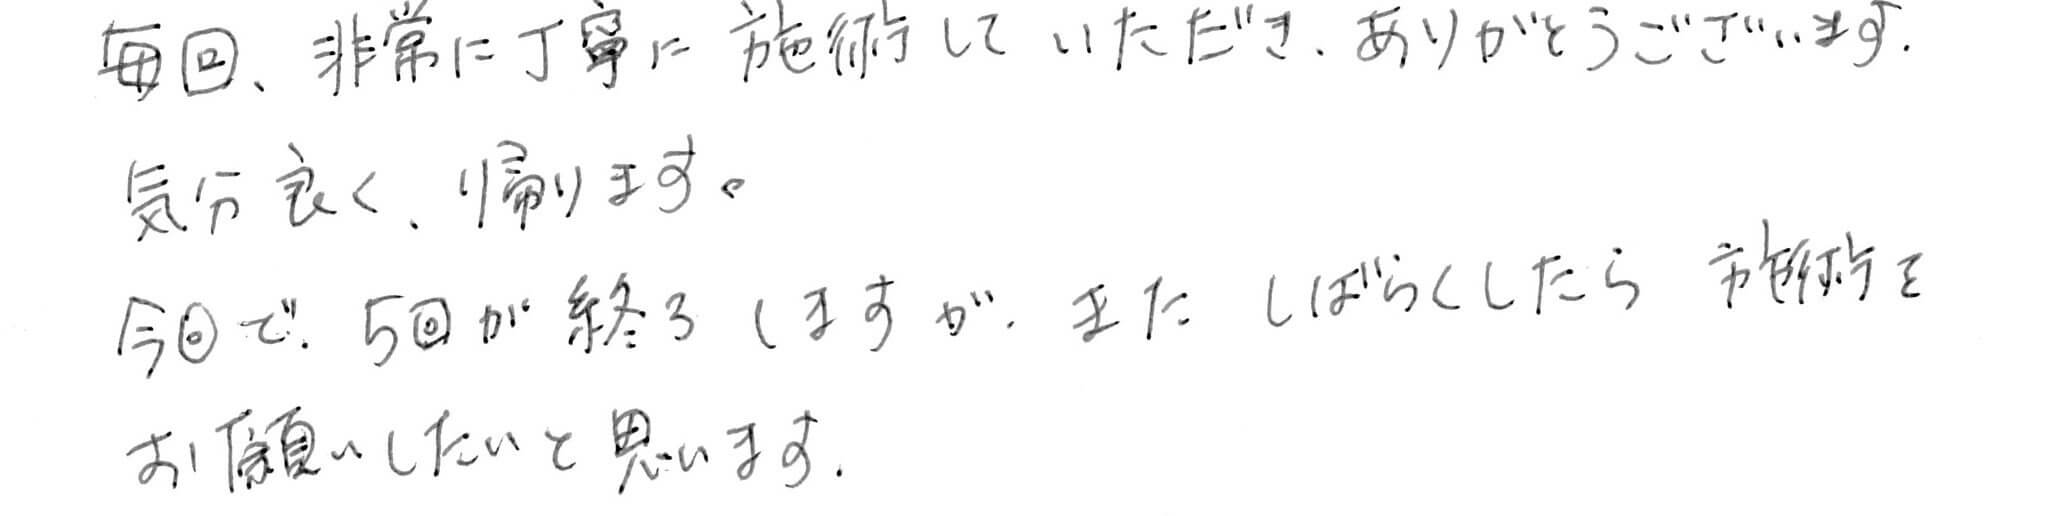 毎回、非常に丁寧に施術していただき、ありがとうございます。
気分良く、帰ります。
今回で、5回が終ろしますが、またしばらくしたら施術を
お願いしたいと思います。